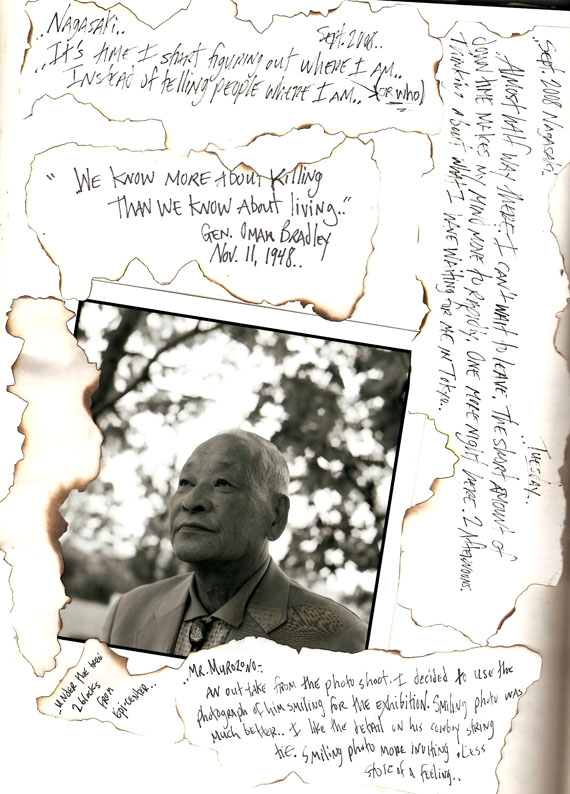 ..Nagasaki..
Sept. 2008..
..It's time I start figuring out where I am..
Instead of telling people where I am.. *(or who)
"We know more about killing
than we know about living.."
Gen. Omar Bradley
Nov. 11, 1948..
..Sept. 2008 Nagasaki..
..Tuesday..
Almost half way there. I can't wait to leave. The short amount of
down time makes my mind move to rapidly. One more night here. 2 Afternoons.
Thinking about what I have waiting for me in Tokyo.
..under the tree
2 blocks
from
epicenter..
..Mr. Murozono-
An out take from the photo shoot. I decided to use the
photograph of him smiling for the exhibition. Smiling photo was
much better.. I like the detail on his cowboy string
tie. Smiling photo more inviting. Less
of a feeling..